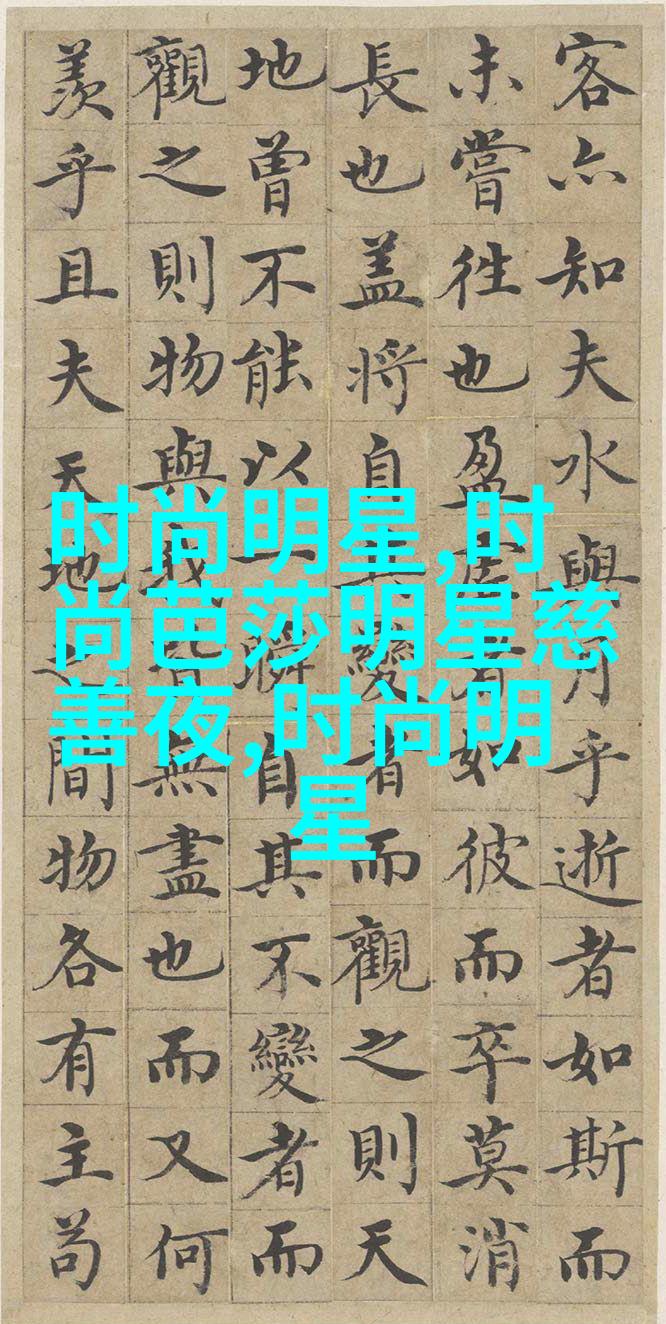 客亦知夫水與月乎逝者如斯而
未嘗往也盈虛者如彼而卒莫消
長也盖將自其變者而觀之則天
地曾不能以一瞬自其不變者而
觀之則物與我皆無盡也而又何
羨乎且夫天地之間物各有主苟
时尚明星,时
尚芭莎明星慈
善夜,时尚明
星